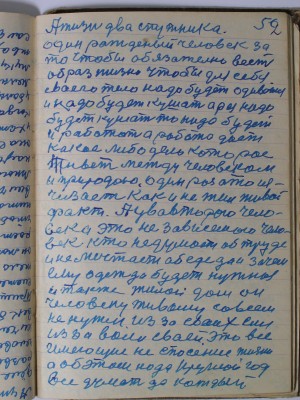 52
А жизни два спутника.
один рожденый человек за
то чтобы обязательно вести
образ жизно чтобы для себя
своего тело надо будет одевати
и надо будет кушат а раз надо
будет кушат то надо будет
и работат а работа дает
какое либо дело которое
Живет между человеком
и природою. один роз это ис-
чезает как и не жил живой
факт. А у
века это не зависемого чело-
век кто не думает об труде
и не мечтает об еде да зачем
ему одежда будет нужна
и также жилой дом он
человеку живому совсем
не нужен из за своих сил
из за воли своей. Это все
имеющие не спасение жизни
а об этом надо круглой год
все думат до который